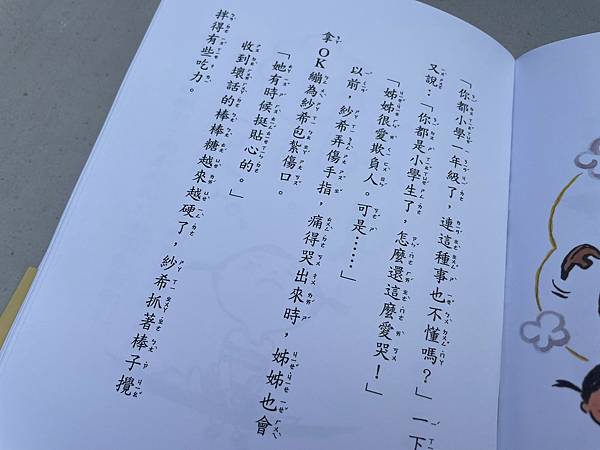 「你都小學一年級了，連這種事也不懂嗎？」一下
又說：「你都是小學生了，怎麼還這麼愛哭！」
「姊姊很愛欺負人。可是……」
以前，紗希弄傷手指，痛得哭出來時，姊姊也會
拿OK繃為紗希包紮傷口。
「她有時候挺貼心的。」
收到壞話的棒棒糖越來越硬了，紗希抓著棒子攪
拌得有些吃力。